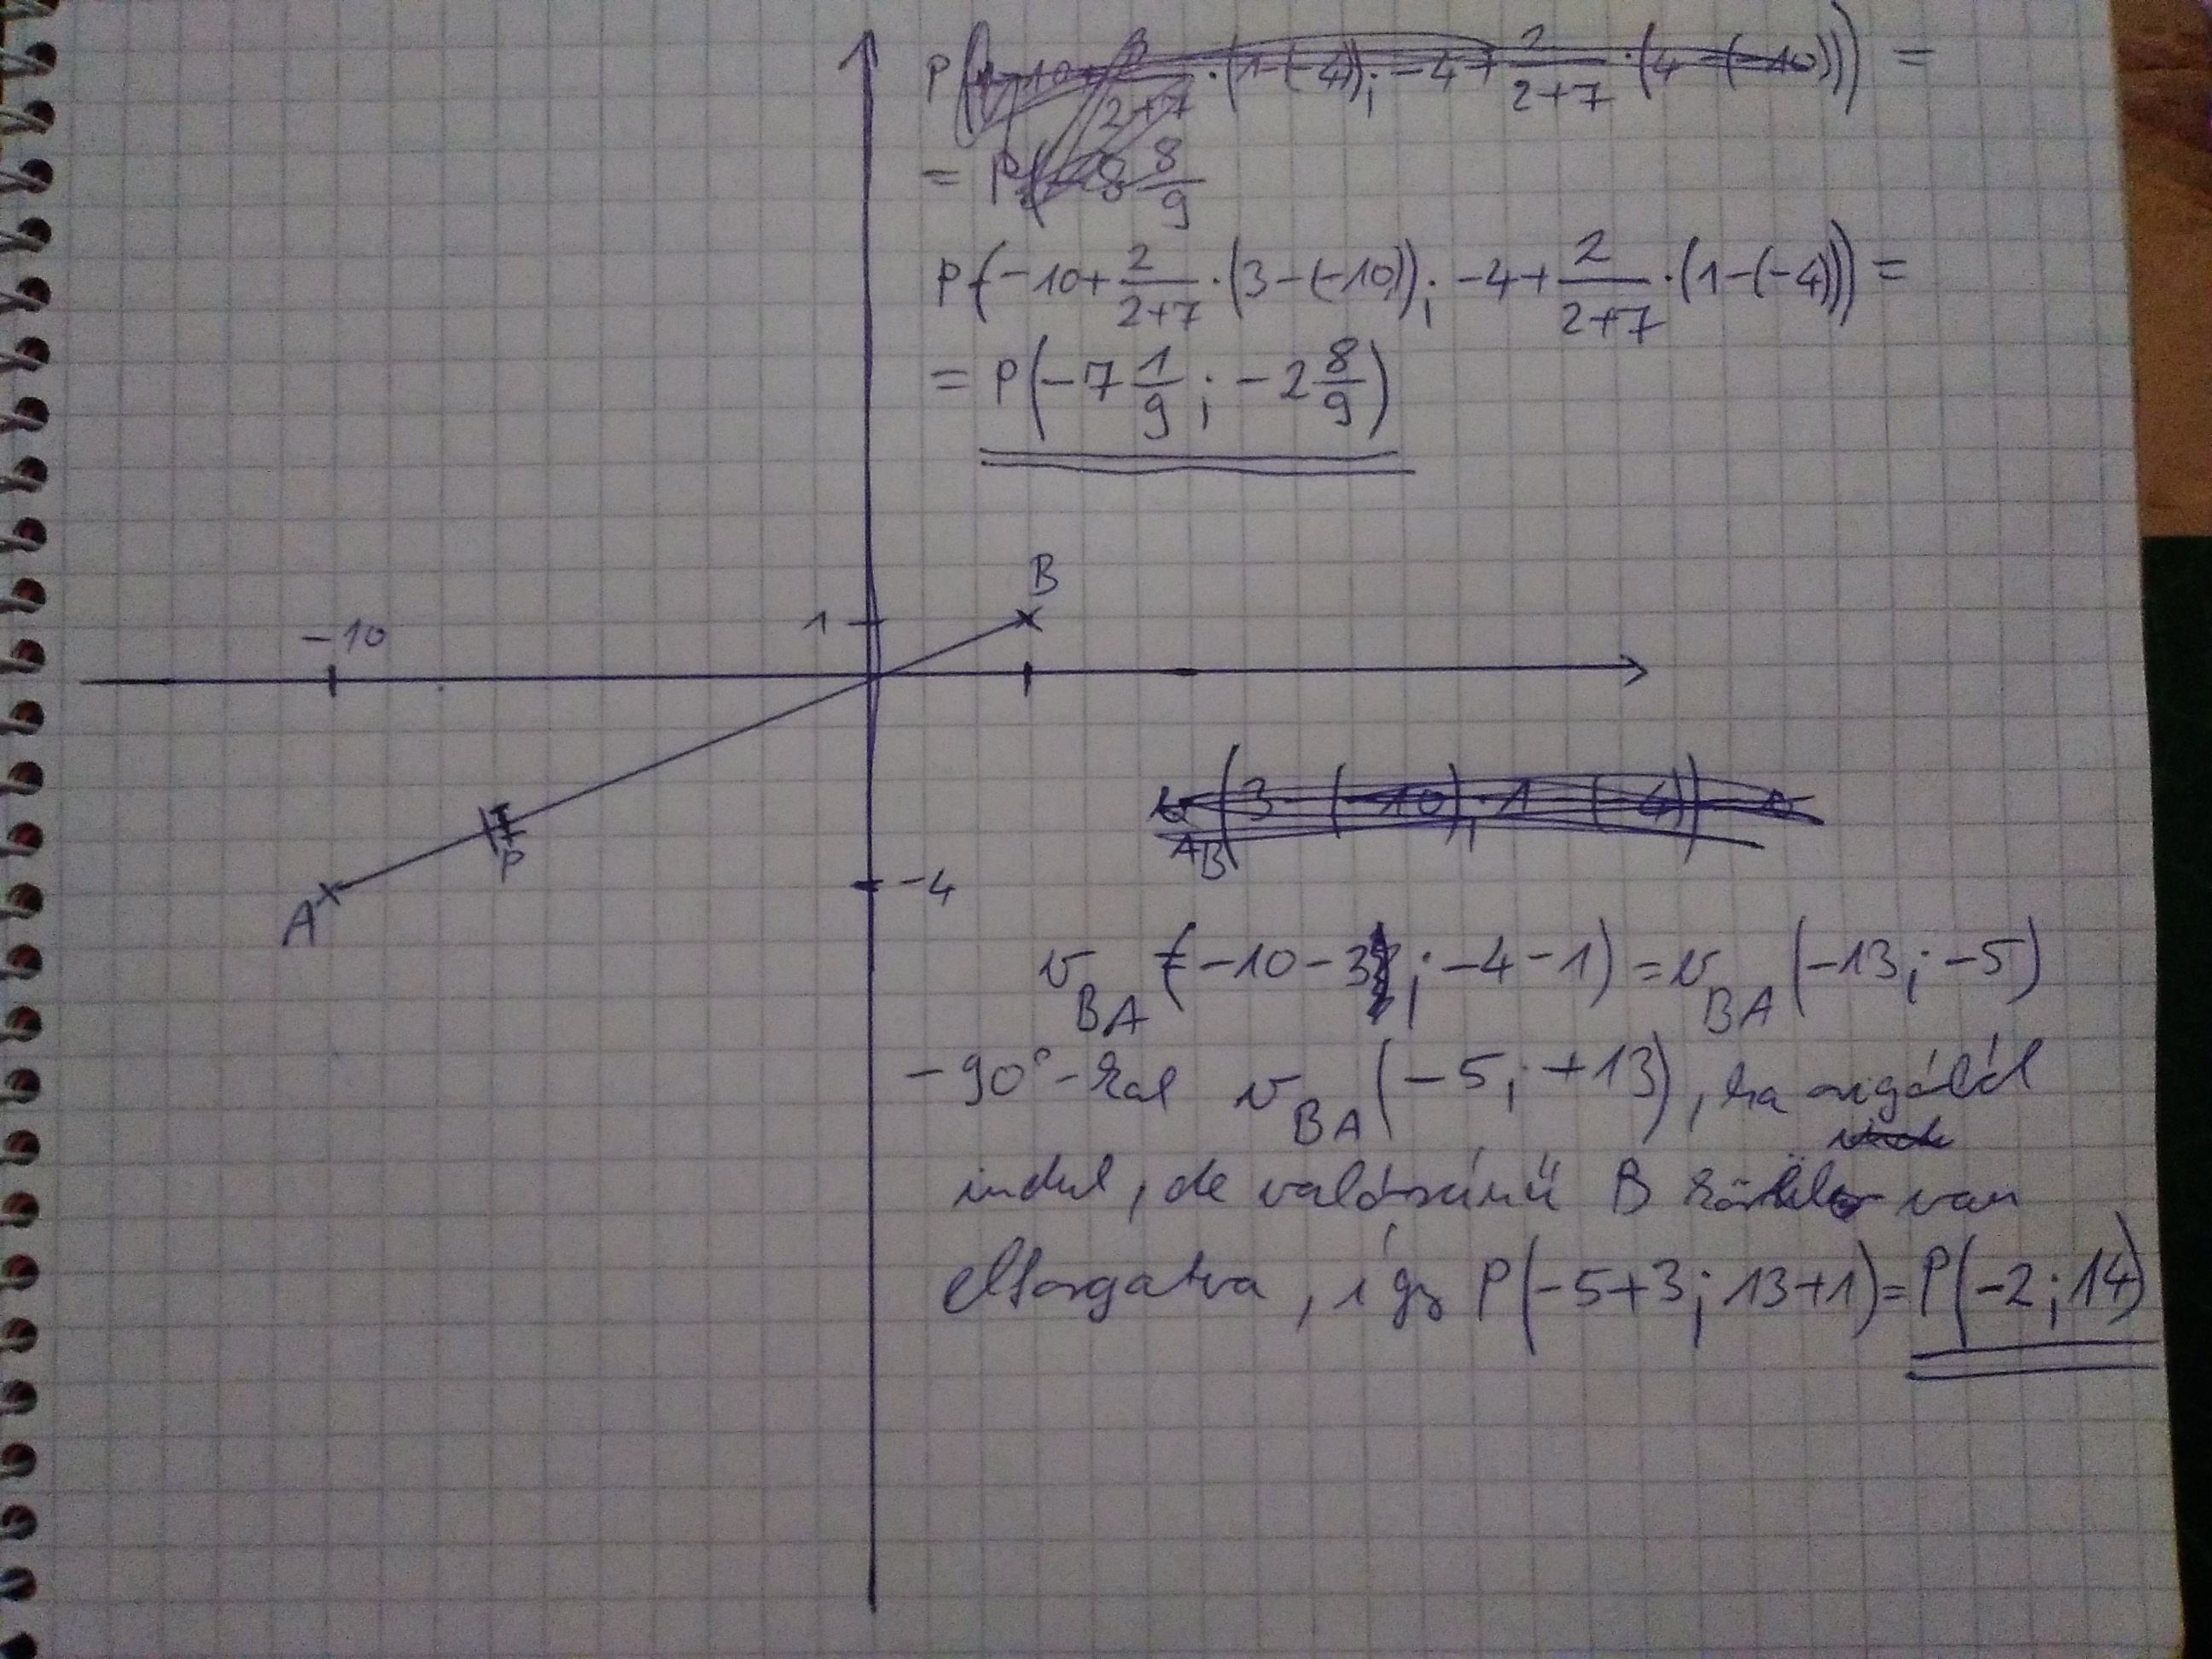 = P
8/9
P(-10+2/(2+7)·(3-(-10)); -4+2/(2+7)·(1-(-4))) =
= P(-7 1/9; -2 8/9)
B
1
-10
P
A
-4
v_BA(-10-3; -4-1) = v_BA(-13; -5)
-90°-kal v_BA(-5; +13), ha origóból
indul, de valószínű B körül van
elforgatva, így P(-5+3; 13+1) = P(-2; 14)